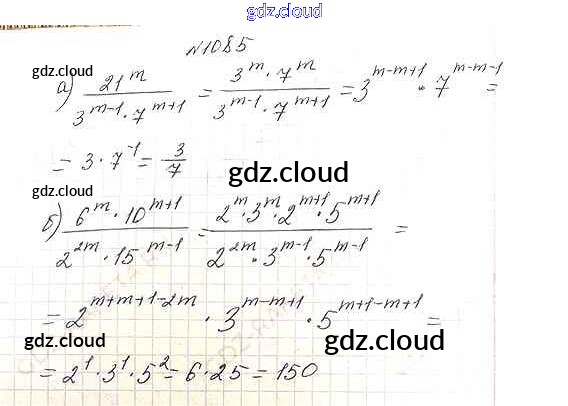 gdz.cloud
№1085
gdz.cloud
а) 21^m / (3^(m-1) · 7^(m+1)) = (3^m · 7^m) / (3^(m-1) · 7^(m+1)) = 3^(m-m+1) · 7^(m-m-1) =
= 3 · 7^(-1) = 3/7
gdz.cloud
gdz.cloud
б) (6^m · 10^(m+1)) / (2^(2m) · 15^(m-1)) = (2^m · 3^m · 2^(m+1) · 5^(m+1)) / (2^(2m) · 3^(m-1) · 5^(m-1)) =
= 2^(m+m+1-2m) · 3^(m-m+1) · 5^(m+1-m+1) =
gdz.cloud
gdz.cloud
= 2^1 · 3^1 · 5^2 = 6 · 25 = 150